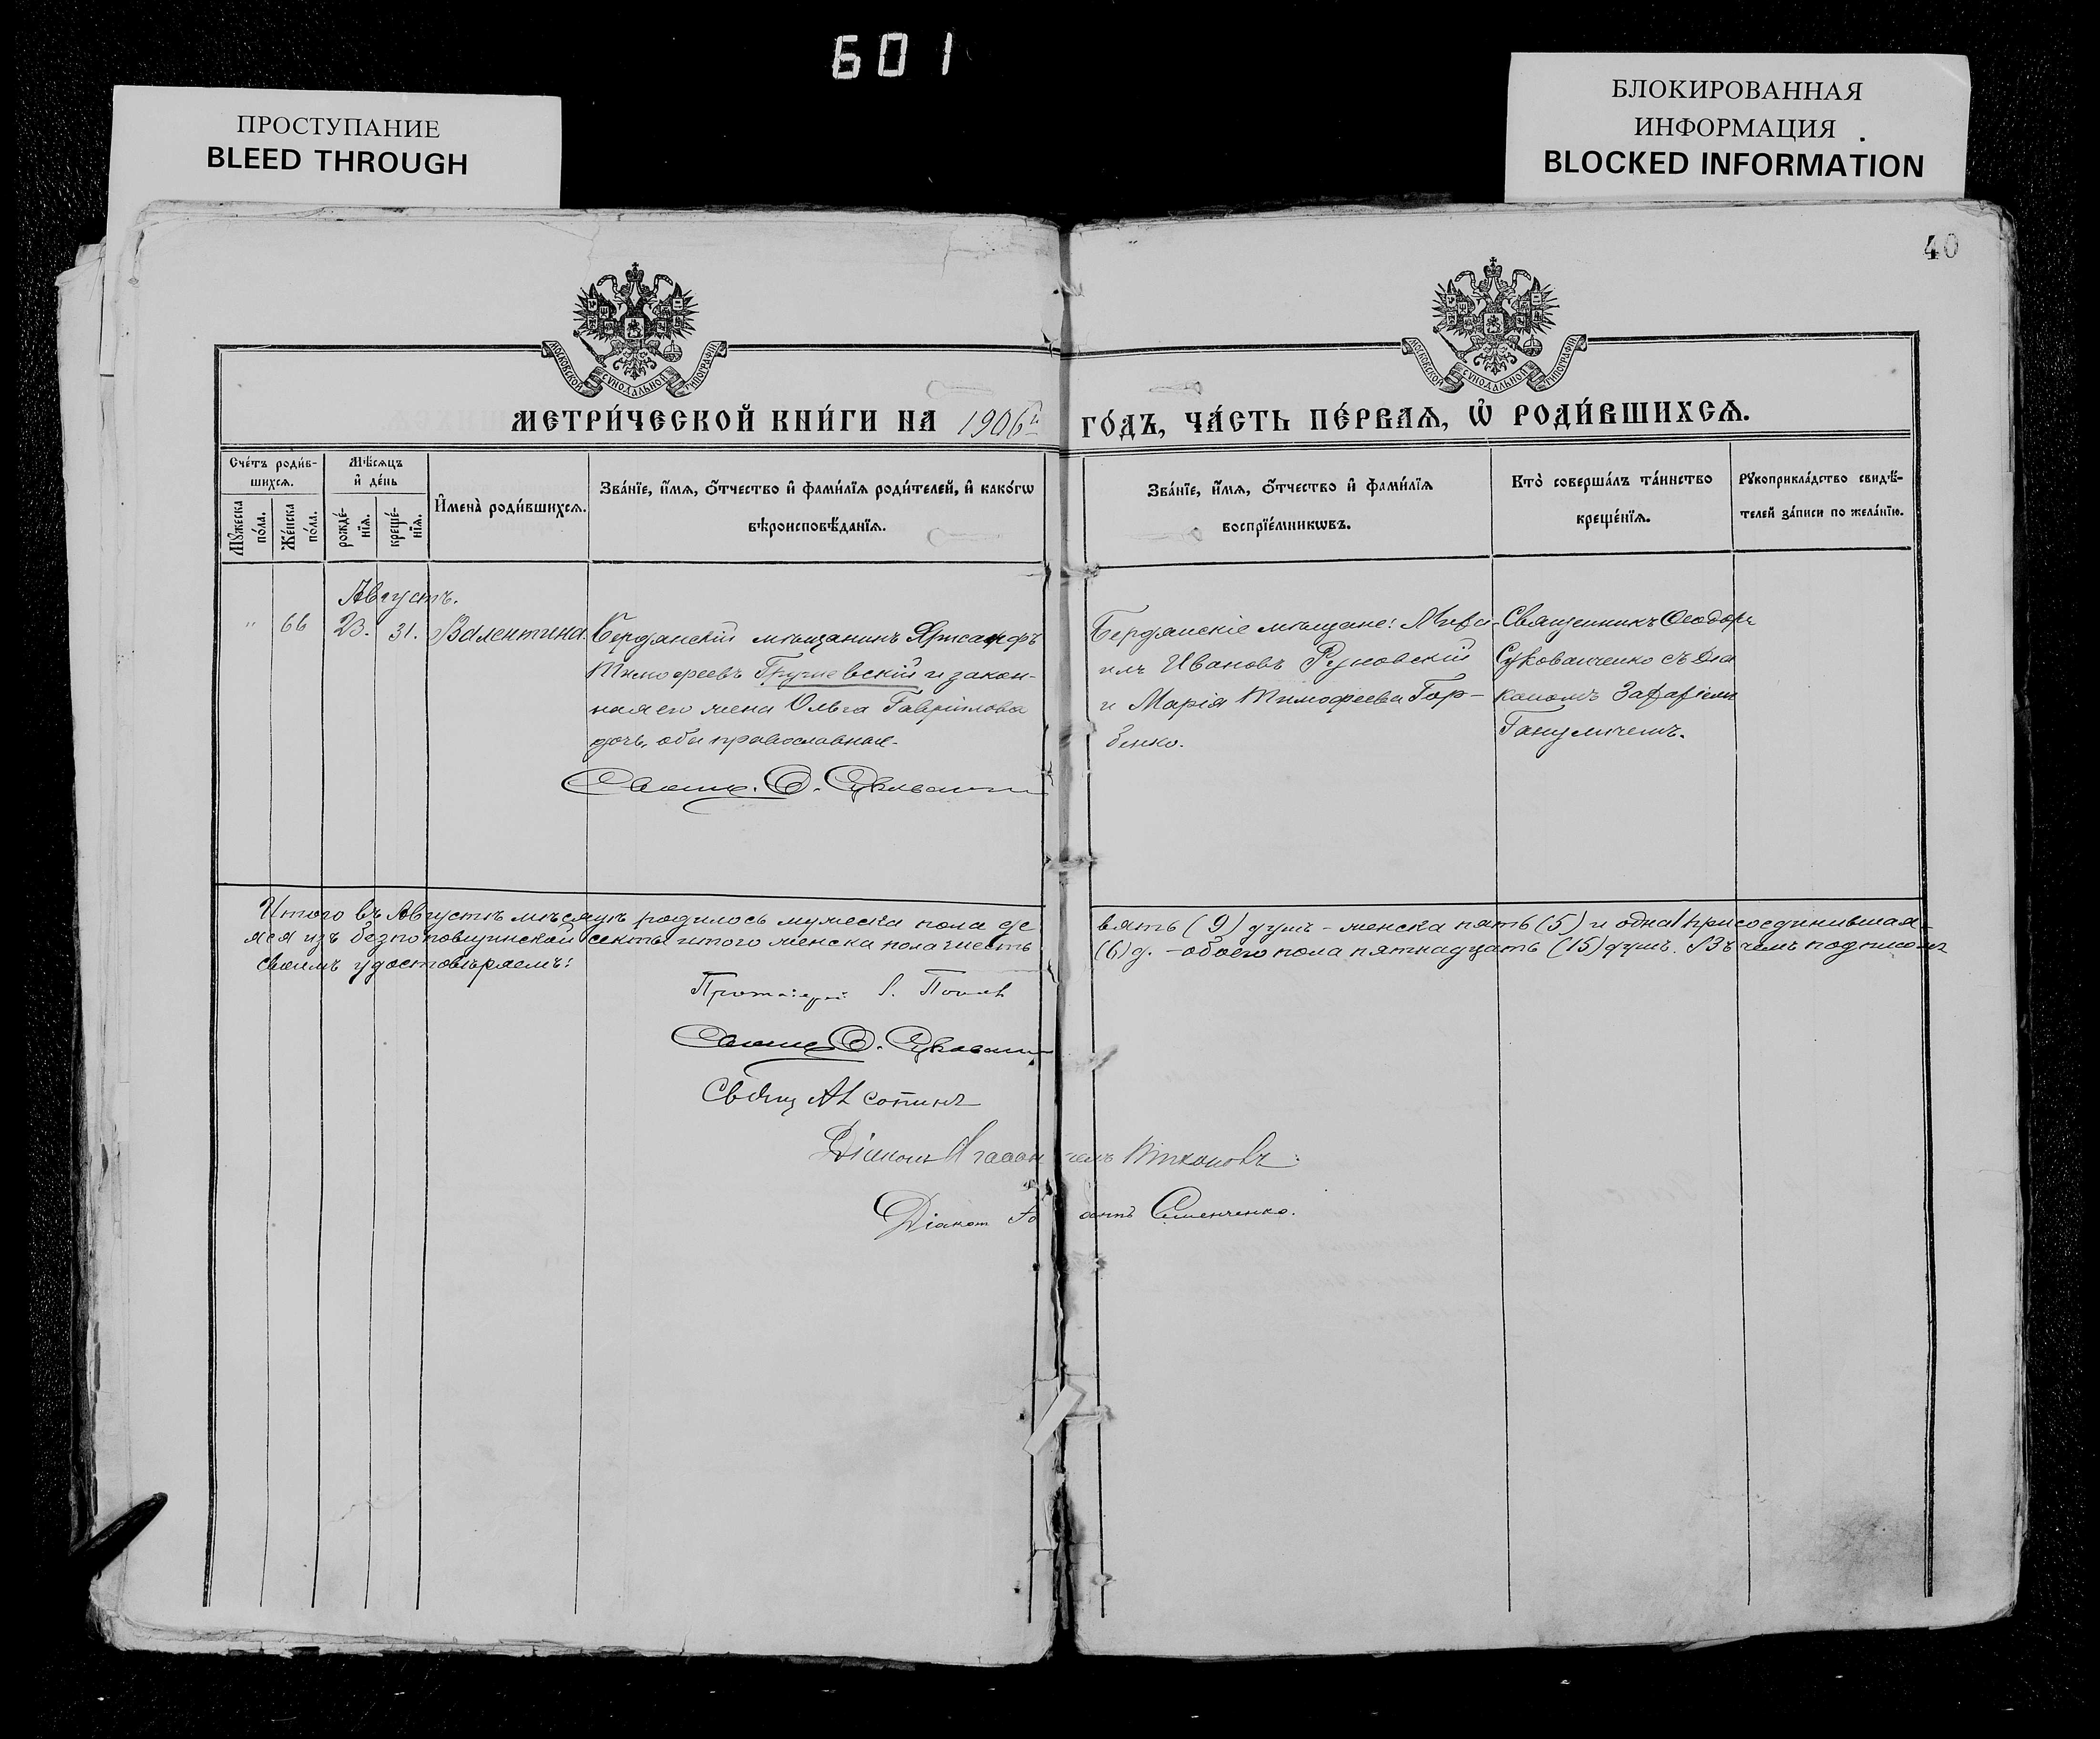 601
ПРОСТУПАНИЕ
BLEED THROUGH
БЛОКИРОВАННАЯ
ИНФОРМАЦИЯ
BLOCKED INFORMATION
40
МОСКОВСКОЙ СѴНОДАЛЬНОЙ ТИПОГРАФІИ
МОСКОВСКОЙ СѴНОДАЛЬНОЙ ТИПОГРАФІИ
МЕТРИ́ЧЕСКОЙ КНИ́ГИ НА 1906й
ГО́ДЪ, ЧА́СТЬ ПЕ́РВАѦ, Ѡ҆ РОДИ́ВШИХСѦ.
Сче́тъ роди́в-
шихсѧ.
Мꙋ́жеска
по́ла.
Же́нска
по́ла.
Мѣ́сѧцъ
и҆ де́нь
рожде́-
нїѧ.
креще́-
нїѧ.
И҆мена̀ роди́вшихсѧ.
Зва́нїе, и҆́мѧ, ѻ҆́тчество и҆ фами́лїѧ роди́телей, и҆ како́гѡ
вѣроисповѣ́данїѧ.
Зва́нїе, и҆́мѧ, ѻ҆́тчество и҆ фами́лїѧ
воспрїе́мникѡвъ.
Кто̀ соверша́лъ та́инство
креще́нїѧ.
Рꙋкоприкла́дство свидѣ́-
телей за́писи по жела́нїю.
Августъ.
" 66 23. 31. Валентина.
Бердянскій мѣщанинъ
Тимофеевъ и закон-
ная его жена Ольга Гаврилова
дочь, оба православные.
Бердянскіе мѣщане: Миха-
илъ Ивановъ
и Марія Тимофеева Гор-
бенко.
Священникъ Ѳеодоръ
Сукованченко съ Діа
кономъ

Свящ. Ѳ.
Итого въ Августѣ мѣсяцѣ родилось мужеска пола де
вять (9) душъ - женска пять (5) и одна присоединившая-
яся изъ безпоповщинской секты итого женска пола шесть
(6) д. - обоего пола пятнадцать (15) душъ. Въ чемъ подписомъ
своимъ удостовѣряемъ:
Протоіерей І. Поповъ
Свящ. Ѳ.
Свящ
Діаконъ Тихоновъ
Діаконъ Семенченко.